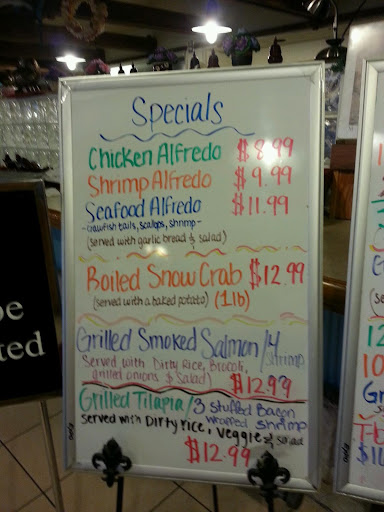 Specials
Chicken Alfredo $8.99
Shrimp Alfredo $9.99
Seafood Alfredo $11.99
- crawfish tails, scallops, shrimp -
(served with garlic bread & salad)
Boiled Snow Crab $12.99
(served with a baked potato) (1lb)
Grilled Smoked Salmon/4 shrimp
Served with Dirty Rice, Broccoli,
grilled onions & Salad) $12.99
Grilled Tilapia/3 Stuffed Bacon
wrapped shrimp
served with Dirty rice, veggie & salad
$12.99